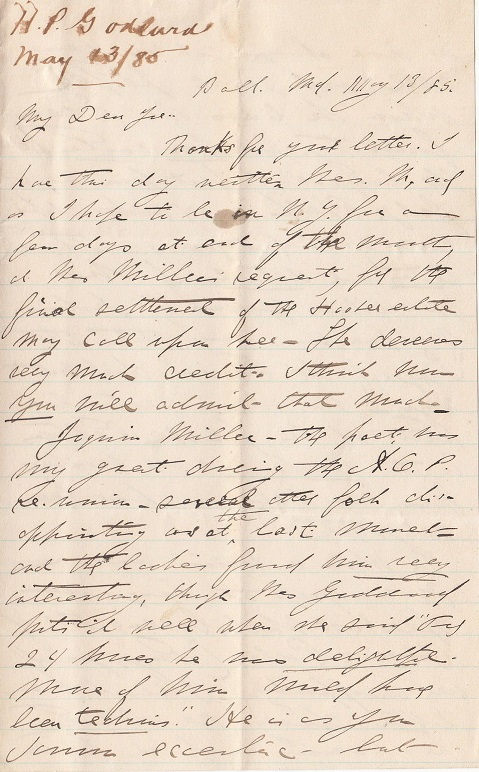 H. P. Goddard
May 13/85
Balt. Md. May 13/85.
My Dear
Thanks for your letter. I
have this day written Mrs. M, and
as I hope to be in N.Y. for a
few days at end of the month,
at Mrs Miller's request, for the
final settlement of the Hooker estate
may call upon her - She deserves
very much credit - I think now
you will admit that much -
Joaquin Miller - the poet, was
my guest during the A. O. P.
Re-union - several other folk dis-
appointing us at the last minute -
and the ladies found him very
interesting, though Mrs Goddard
puts it well when she said "For
24 hours he was delightful -
more of him would have
been tedious." He is as you
know eccentric - but